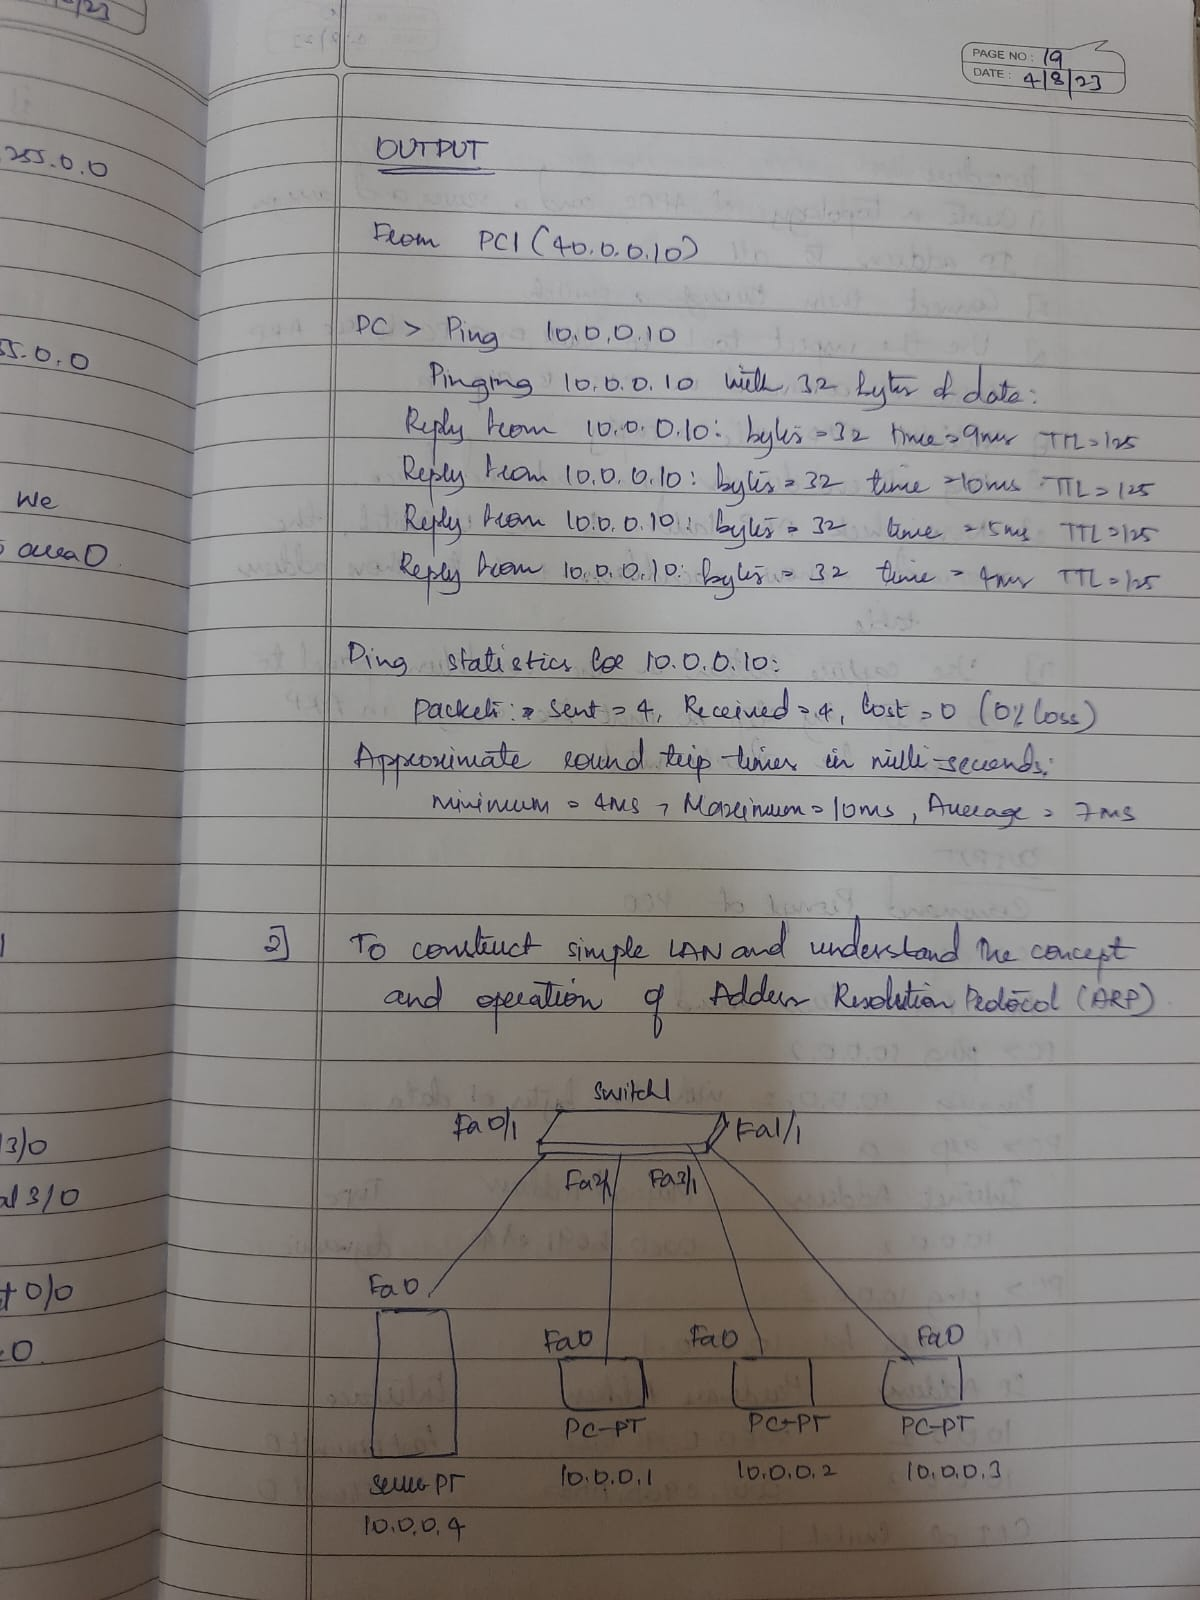 PAGE NO: 19
DATE: 4/8/23
255.0.0
55.0.0
We
area 0
3/0
al 3/0
0/0
OUTPUT
From PC1 (40.0.0.10)
PC > Ping 10.0.0.10
Pinging 10.0.0.10 with 32 bytes of data:
Reply from 10.0.0.10: bytes=32 time=9ms TTL=125
Reply from 10.0.0.10: bytes=32 time=10ms TTL=125
Reply from 10.0.0.10: bytes=32 time=5ms TTL=125
Reply from 10.0.0.10: bytes=32 time=4ms TTL=125
Ping statistics for 10.0.0.10:
Packets: Sent=4, Received=4, Lost=0 (0% loss)
Approximate round trip times in milli-seconds:
Minimum = 4ms, Maximum = 10ms, Average = 7ms
2] To construct simple LAN and understand the concept
and operation of Address Resolution Protocol (ARP)
Switch1
Fa0/1 Fa1/1
Fa2/1 Fa3/1
Fa0
Fa0 Fa0 Fa0
PC-PT PC-PT PC-PT
Server-PT 10.0.0.1 10.0.0.2 10.0.0.3
10.0.0.4